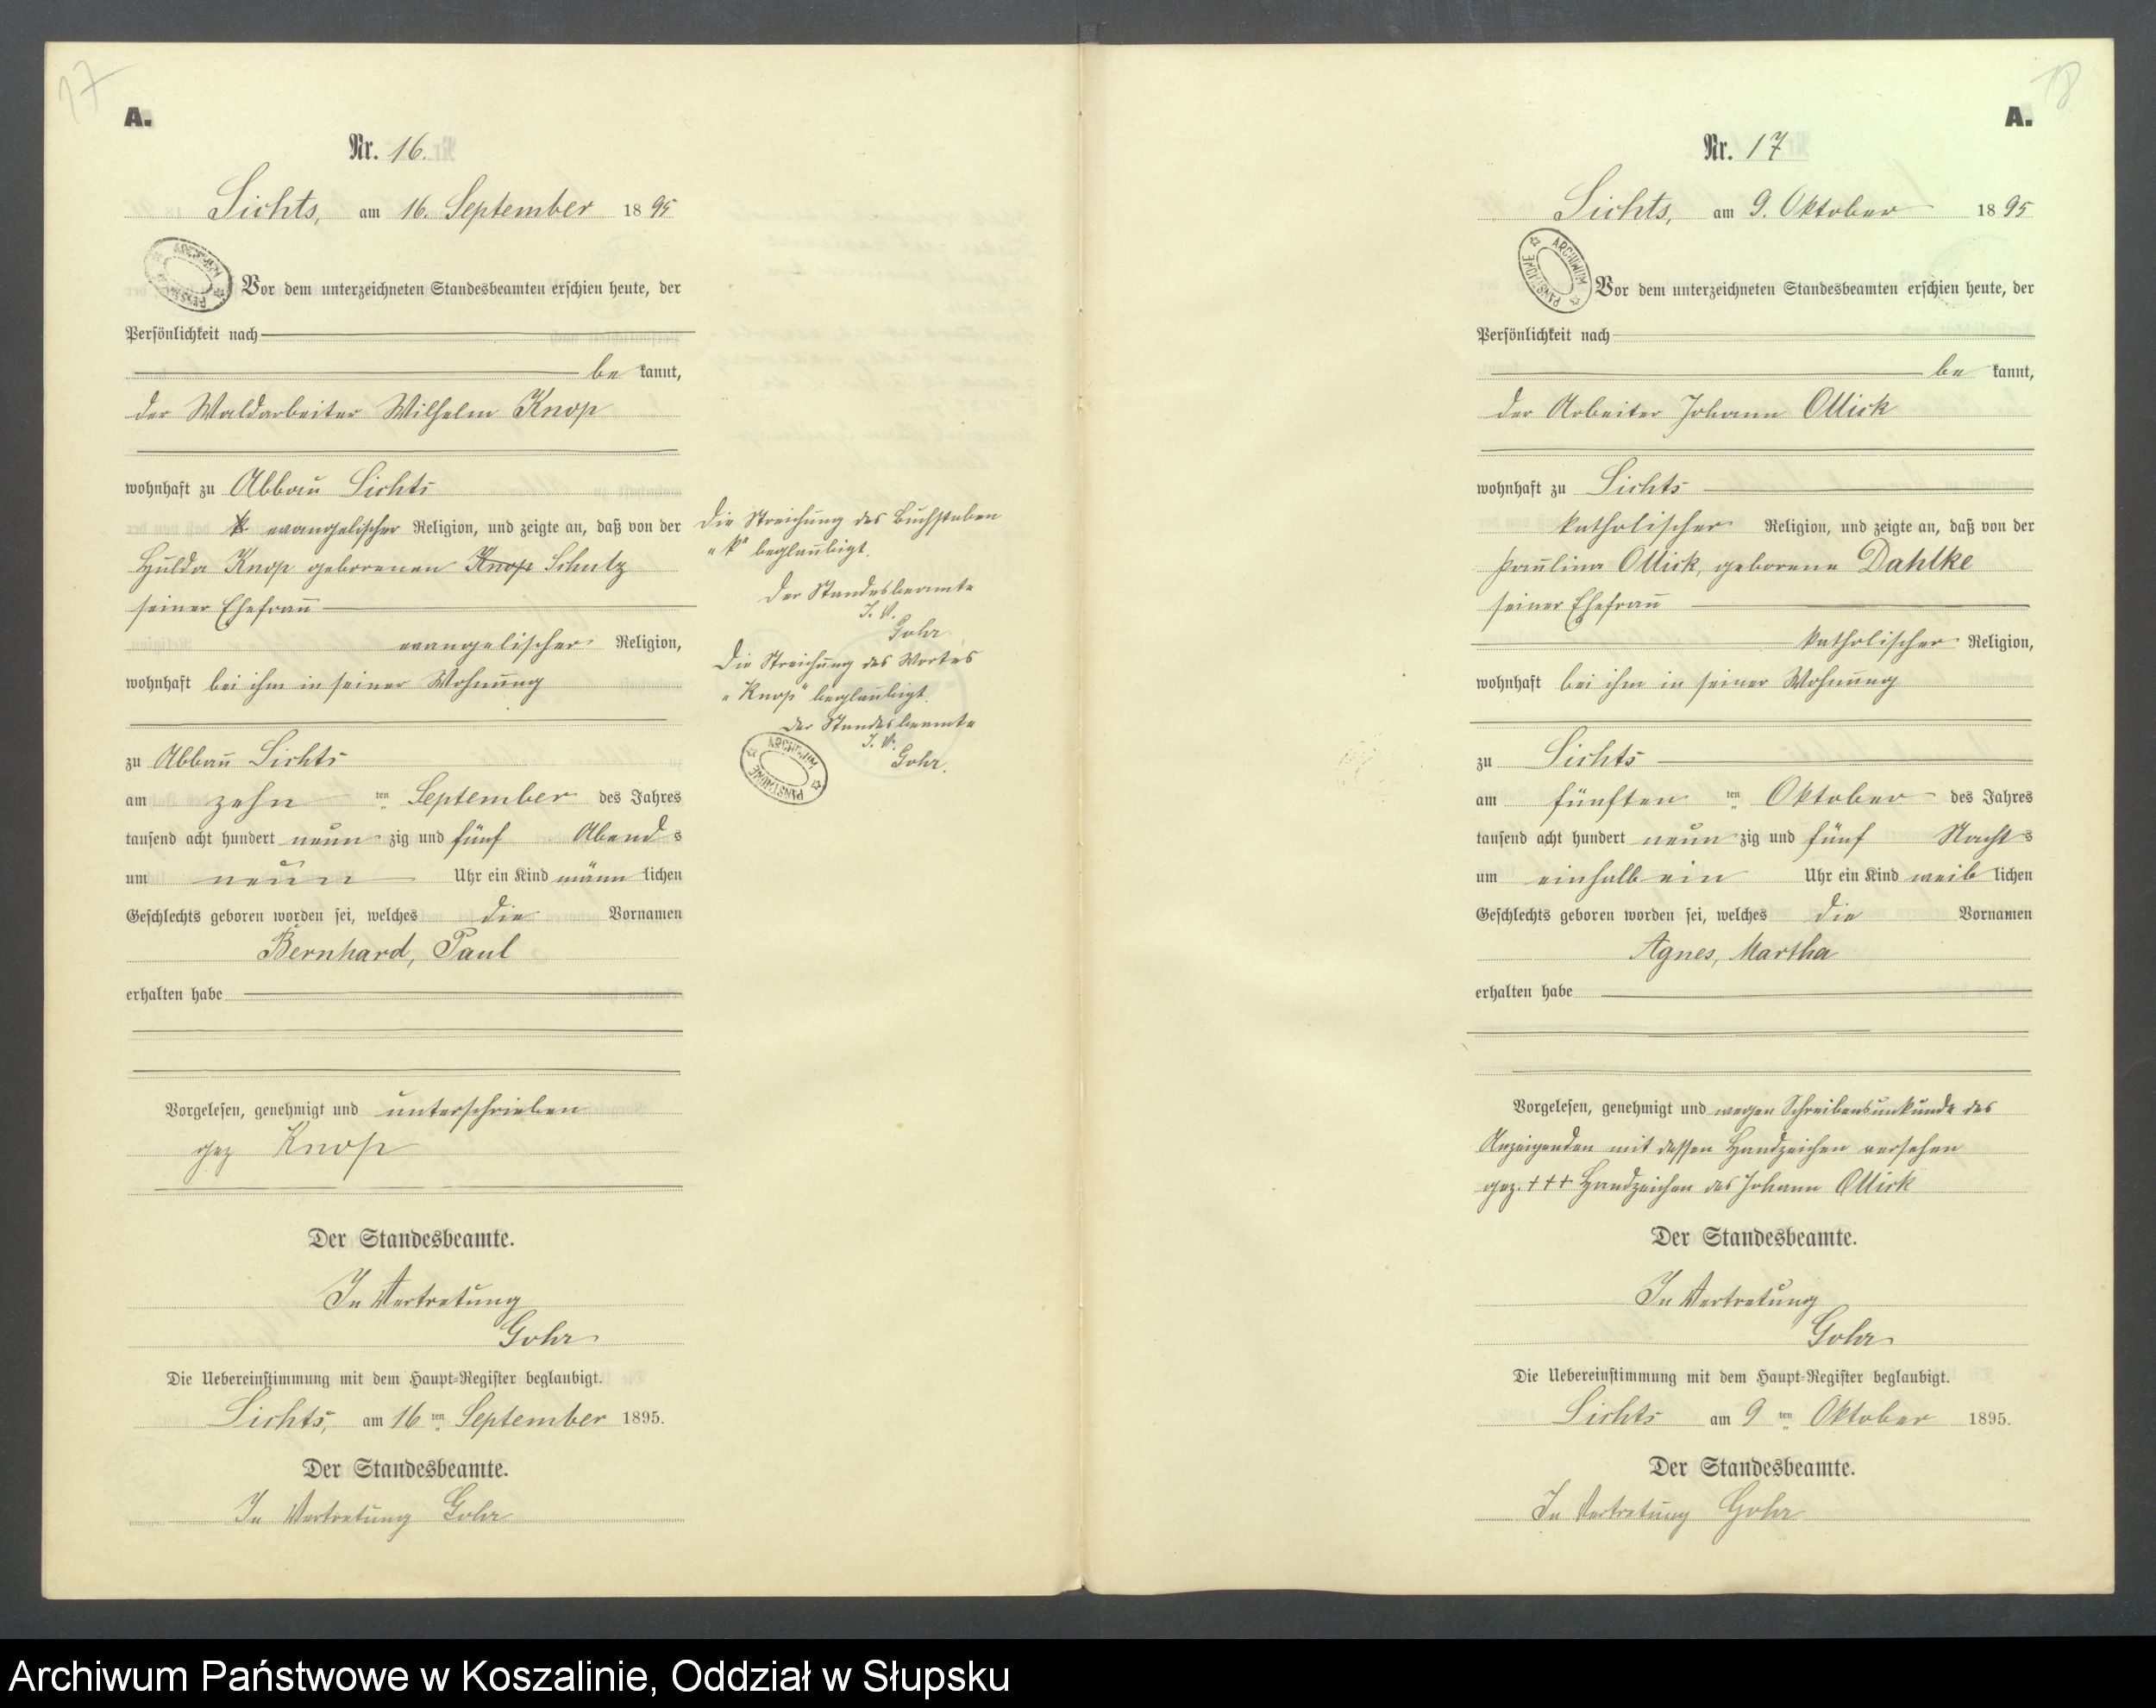 17
A.
Nr. 16.
Sichts, am 16. September 1895
ARCHIWUM PAŃSTWOWE
Vor dem unterzeichneten Standesbeamten erschien heute, der
Persönlichkeit nach
be kannt,
der Waldarbeiter Wilhelm Knop
wohnhaft zu Abbau Sichts
k. evangelischer Religion, und zeigte an, daß von der
Hulda Knop geborenen Knop Schulz
seiner Ehefrau
evangelischer Religion,
wohnhaft bei ihm in seiner Wohnung
zu Abbau Sichts
am zehn ten September des Jahres
tausend acht hundert neun zig und fünf Abend s
um neun Uhr ein Kind männ lichen
Geschlechts geboren worden sei, welches die Vornamen
Bernhard, Paul
erhalten habe
Vorgelesen, genehmigt und unterschrieben
gez Knop
Der Standesbeamte.
In Vertretung
Gohr
Die Uebereinstimmung mit dem Haupt-Register beglaubigt.
Sichts, am 16 ten September 1895.
Der Standesbeamte.
In Vertretung Gohr
Die Streichung des Buchstaben
„k" beglaubigt.
Der Standesbeamte
I. V.
Gohr
Die Streichung des Wortes
„Knop" beglaubigt.
Der Standesbeamte
I. V.
Gohr.
ARCHIWUM PAŃSTWOWE
18
A.
Nr. 17
Sichts, am 9. Oktober 1895
ARCHIWUM PAŃSTWOWE
Vor dem unterzeichneten Standesbeamten erschien heute, der
Persönlichkeit nach
be kannt,
der Arbeiter Johann Ollick
wohnhaft zu Sichts
katholischer Religion, und zeigte an, daß von der
Paulina Ollick, geborene Dahlke
seiner Ehefrau
katholischer Religion,
wohnhaft bei ihm in seiner Wohnung
zu Sichts
am fünften ten Oktober des Jahres
tausend acht hundert neun zig und fünf Nacht s
um einhalb ein Uhr ein Kind weib lichen
Geschlechts geboren worden sei, welches die Vornamen
Agnes, Martha
erhalten habe
Vorgelesen, genehmigt und wegen Schreibensunkunde des
Anzeigenden mit dessen Handzeichen versehen
gez. +++ Handzeichen des Johann Ollick
Der Standesbeamte.
In Vertretung
Gohr
Die Uebereinstimmung mit dem Haupt-Register beglaubigt.
Sichts am 9 ten Oktober 1895.
Der Standesbeamte.
In Vertretung Gohr
Archiwum Państwowe w Koszalinie, Oddział w Słupsku